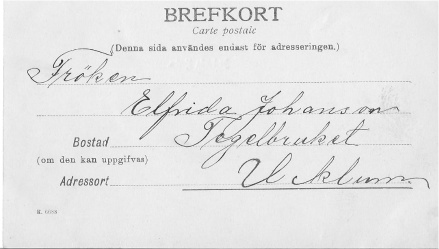 BREFKORT
Carte postale
(Denna sida användes endast för adresseringen.)
Fröken
Elfrida Johanson
Bostad Tegelbruket
(om den kan uppgifvas)
Adressort Ucklum